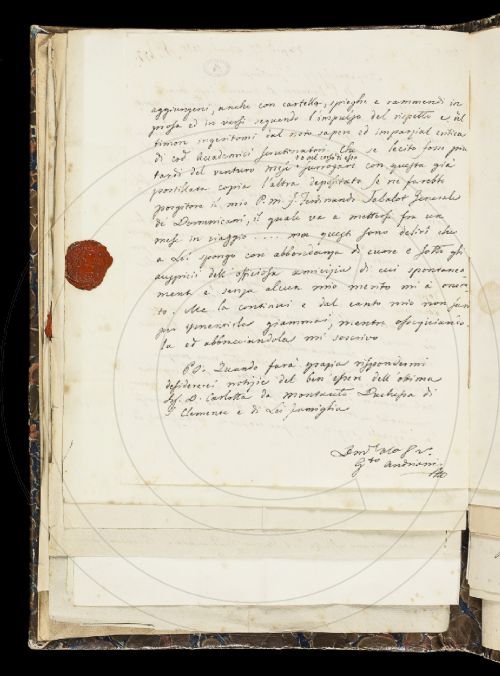 aggiungervi, anche con cartella, spieghe e rammendi in
prosa ed in versi seguendo l'impulso del rispetto e il
timore ingeritomi dal noto sapere ed imparzial critica
di cod. Accademici scrutinatori. Che se lecito fosse più
tardi del venturo mese surrogare con questa già
postillata copia l'altra depositata se ne farebbe
porgitore il mio P. M. f. Ferdinando Jabalot Generale
de Domenicani, il quale va a mettersi fra un
mese in viaggio ..... ma questi sono delirj che
a Lei spongo con abbondanza di cuore e sotto gli
auspicii dell' officiosa amicizia di cui spontanea
mente e senza alcun mio merito mi à onora
to. Me la continui e dal canto mio non fia
per giammai, mentre ossequiando
la ed abbracciandola mi soscrivo
P.S. Quando farà grazia rispondermi
desidererei notizie del ben essere dell' ottima
Sig. D. Carlotta da Montauto Duchessa di
S. Clemente e di Lei famiglia
Andriani